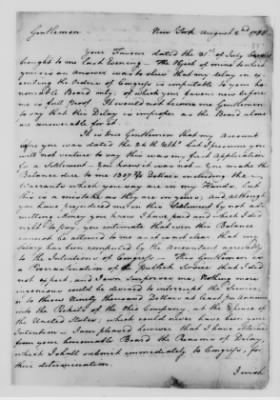 Gentlemen New York August 2nd 1786
Your Favour dated the 31st of July
brought to me last Evening — The Object of mine to which
yours is an answer was to shew that my delay in ex-
ecuting the Orders of Congress is imputable to your ho-
norable Board only, of which your Favour now before
me is full Proof. It would not become me Gentlemen
to say that this Delay is improper as the Board alone
are answerable for it.
It is true Gentlemen that my Account
you was dated the 24th but I presume you
will not venture to say this was my first Application
to a Settlement — you know it was not — you made the
Balance due to me Dollars including the
Warrants which you say are in my Hands, but
this is a mistake as they are in yours; and although
you have prejudiced me in this Settlement by not ad-
mitting Money you know I have paid and which I had
right to pay, you intimate that even this Balance
cannot be allowed to me and
salary has been computed by the Accountant agreeably
to the Intentions of Congress — This Gentlemen is
a Procrastination of the Publick Service that I did
not expect, and I am sure more Nothing more
injurious could be devised to interrupt the Service,
and to throw Ninety thousand Dollars at least per Annum
into the Pockets of the Ohio Company, at the Expence of
the United States, which could never have been your
Intention — I am pleased however that I have
from your honorable Board the Reasons of Delay,
which I shall submit immediately to Congress, for
their determination.
I wish